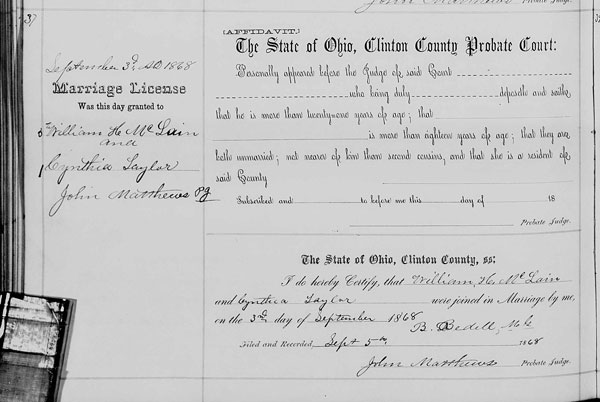 John Matthews Probate Judge.
37
September 3d, AD 1868
Marriage License
Was this day granted to
William H. McLain
and
Cynthia Taylor
John Matthews PJ
(AFFIDAVIT.)
The State of Ohio, Clinton County Probate Court:
Personally appeared before the Judge of said Court
who being duly deposeth and saith
that he is more than twenty-one years of age; that
is more than eighteen years of age; that they are
both unmarried; not nearer of kin than second cousins, and that she is a resident of
said County
Subscribed and to before me this day of 18
Probate Judge.
The State of Ohio, Clinton County, ss:
I do hereby Certify, that William, H. McLain
and Cynthia Taylor were joined in Marriage by me,
on the 3d day of September 1868
B. Bedell, M.G.
Filed and Recorded, Sept 5th, 1868
John Matthews Probate Judge.